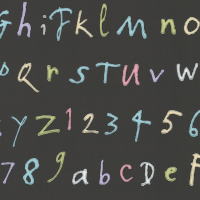 G h i F k l M n o
P Q r S T U V W
x y Z 1 2 3 4 5 6
7 8 9 a b c D e F